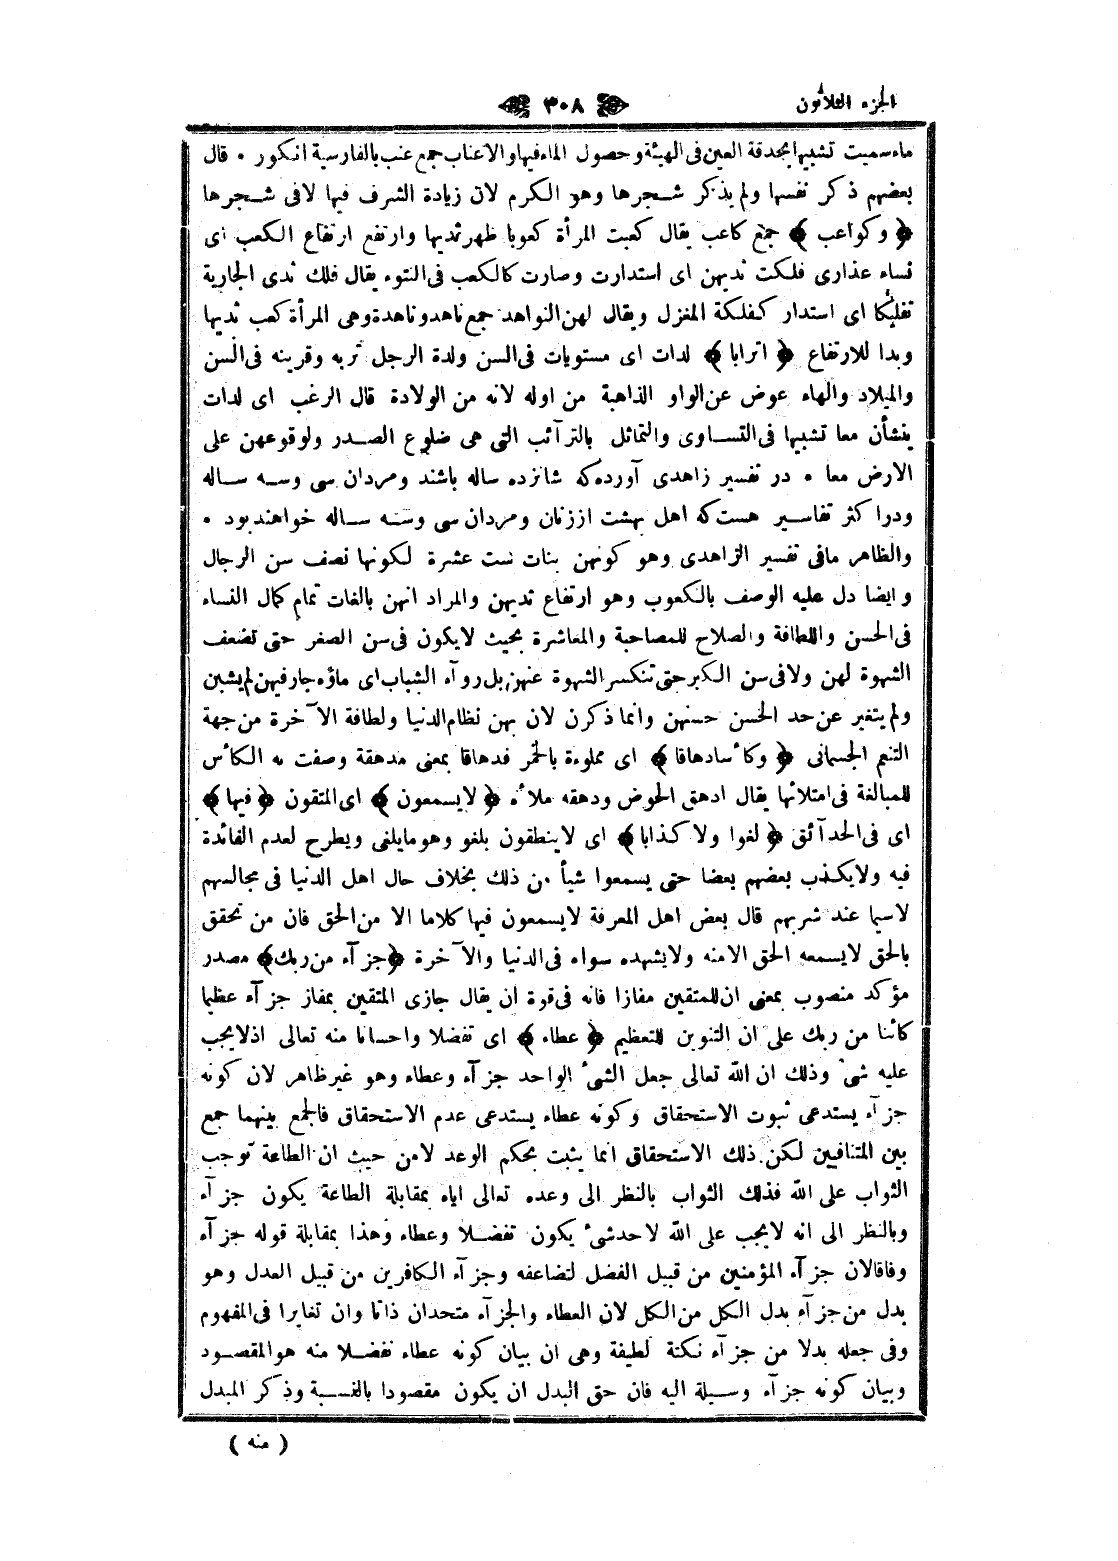 الجزء الثلاثون
٣٠٨
ماء سميت تشبيها بحدقة العين فى الهيئة وحصول الماء فيها والاعناب جمع عنب بالفارسية انكور . قال
بعضهم ذكر نفسها ولم يذكر شجرها وهو الكرم لان زيادة الشرف فيها لا فى شجرها
﴿ وكواعب ﴾ جمع كاعب يقال كعبت المرأة كعوبا ظهر ثديها وارتفع ارتفاع الكعب اى
نساء عذارى فلكت ثديهن اى استدارت وصارت كالكعب فى النتوء يقال فلك ثدى الجارية
تفليكا اى استدار كفلكة المغزل ويقال لهن النواهد جمع ناهد وناهدة وهى المرأة كعب ثديها
وبدا للارتفاع ﴿ اترابا ﴾ لدات اى مستويات فى السن ولدة الرجل تربه وقرينه فى السن
والميلاد والهاء عوض عن الواو الذاهبة من اوله لانه من الولادة قال الرغب اى لدات
ينشأن معا تشبيها فى التساوى والتماثل بالترآئب التى هى ضلوع الصدر ولوقوعهن على
الارض معا . در تفسير زاهدى آورده كه شانزده ساله باشند ومردان سى وسه ساله
ودر اكثر تفاسير هست كه اهل بهشت از زنان ومردان سى وسه ساله خواهند بود .
والظاهر مافى تفسير الزاهدى وهو كونهن بنات ست عشرة لكونها نصف سن الرجال
وايضا دل عليه الوصف بالكعوب وهو ارتفاع ثديهن والمراد انهن بالغات تمام كمال النساء
فى الحسن واللطافة والصلاح للمصاحبة والمعاشرة بحيث لا يكون فى سن الصغر حتى تضعف
الشهوة لهن ولا فى سن الكبر حتى تنكسر الشهوة عنهن بل رو آء الشباب اى ماؤه جار فيهن لم يشبن
ولم يتغير عن حد الحسن حسنهن وانما ذكرن لان بهن نظام الدنيا ولطافة الآخرة من جهة
التنعم الجسمانى ﴿ وكأسا دهاقا ﴾ اى مملوءة بالخمر فدهاقا بمعنى مدهقة وصفت به الكأس
للمبالغة فى امتلائها يقال ادهق الحوض ودهقه ملأه ﴿ لا يسمعون ﴾ اى المتقون ﴿ فيها ﴾
اى فى الحدآئق ﴿ لغوا ولا كذابا ﴾ اى لا ينطقون بلغو وهو مايلغى ويطرح لعدم الفائدة
فيه ولا يكذب بعضهم بعضا حتى يسمعوا شيأ من ذلك بخلاف حال اهل الدنيا فى مجالسهم
لا سيما عند شربهم قال بعض اهل المعرفة لا يسمعون فيها كلاما الا من الحق فان من تحقق
بالحق لا يسمعه الحق الا منه ولا يشهده سواه فى الدنيا والآخرة ﴿ جزآء من ربك ﴾ مصدر
مؤكد منصوب بمعنى ان للمتقين مفازا فانه فى قوة ان يقال جازى المتقين بمفاز جزآء عظيما
كائنا من ربك على ان التنوين للتعظيم ﴿ عطاء ﴾ اى تفضلا واحسانا منه تعالى اذ لا يجب
عليه شئ وذلك ان الله تعالى جعل الشئ الواحد جزآء وعطاء وهو غير ظاهر لان كونه
جزآء يستدعى ثبوت الاستحقاق وكونه عطاء يستدعى عدم الاستحقاق فالجمع بينهما جمع
بين المتنافيين لكن ذلك الاستحقاق انما يثبت بحكم الوعد لا من حيث ان الطاعة توجب
الثواب على الله فذلك الثواب بالنظر الى وعده تعالى اياه بمقابلة الطاعة يكون جزآء
وبالنظر الى انه لا يجب على الله لاحد شئ يكون تفضلا وعطاء وهذا بمقابلة قوله جزآء
وفاقا لان جزآء المؤمنين من قبيل الفضل لتضاعفه وجزآء الكافرين من قبيل العدل وهو
بدل من جزآء بدل الكل من الكل لان العطاء والجزآء متحدان ذاتا وان تغايرا فى المفهوم
وفى جعله بدلا من جزآء نكتة لطيفة وهى ان بيان كونه عطاء تفضلا منه هو المقصود
وبيان كونه جزآء وسيلة اليه فان حق البدل ان يكون مقصودا بالنسبة وذكر المبدل
( منه )